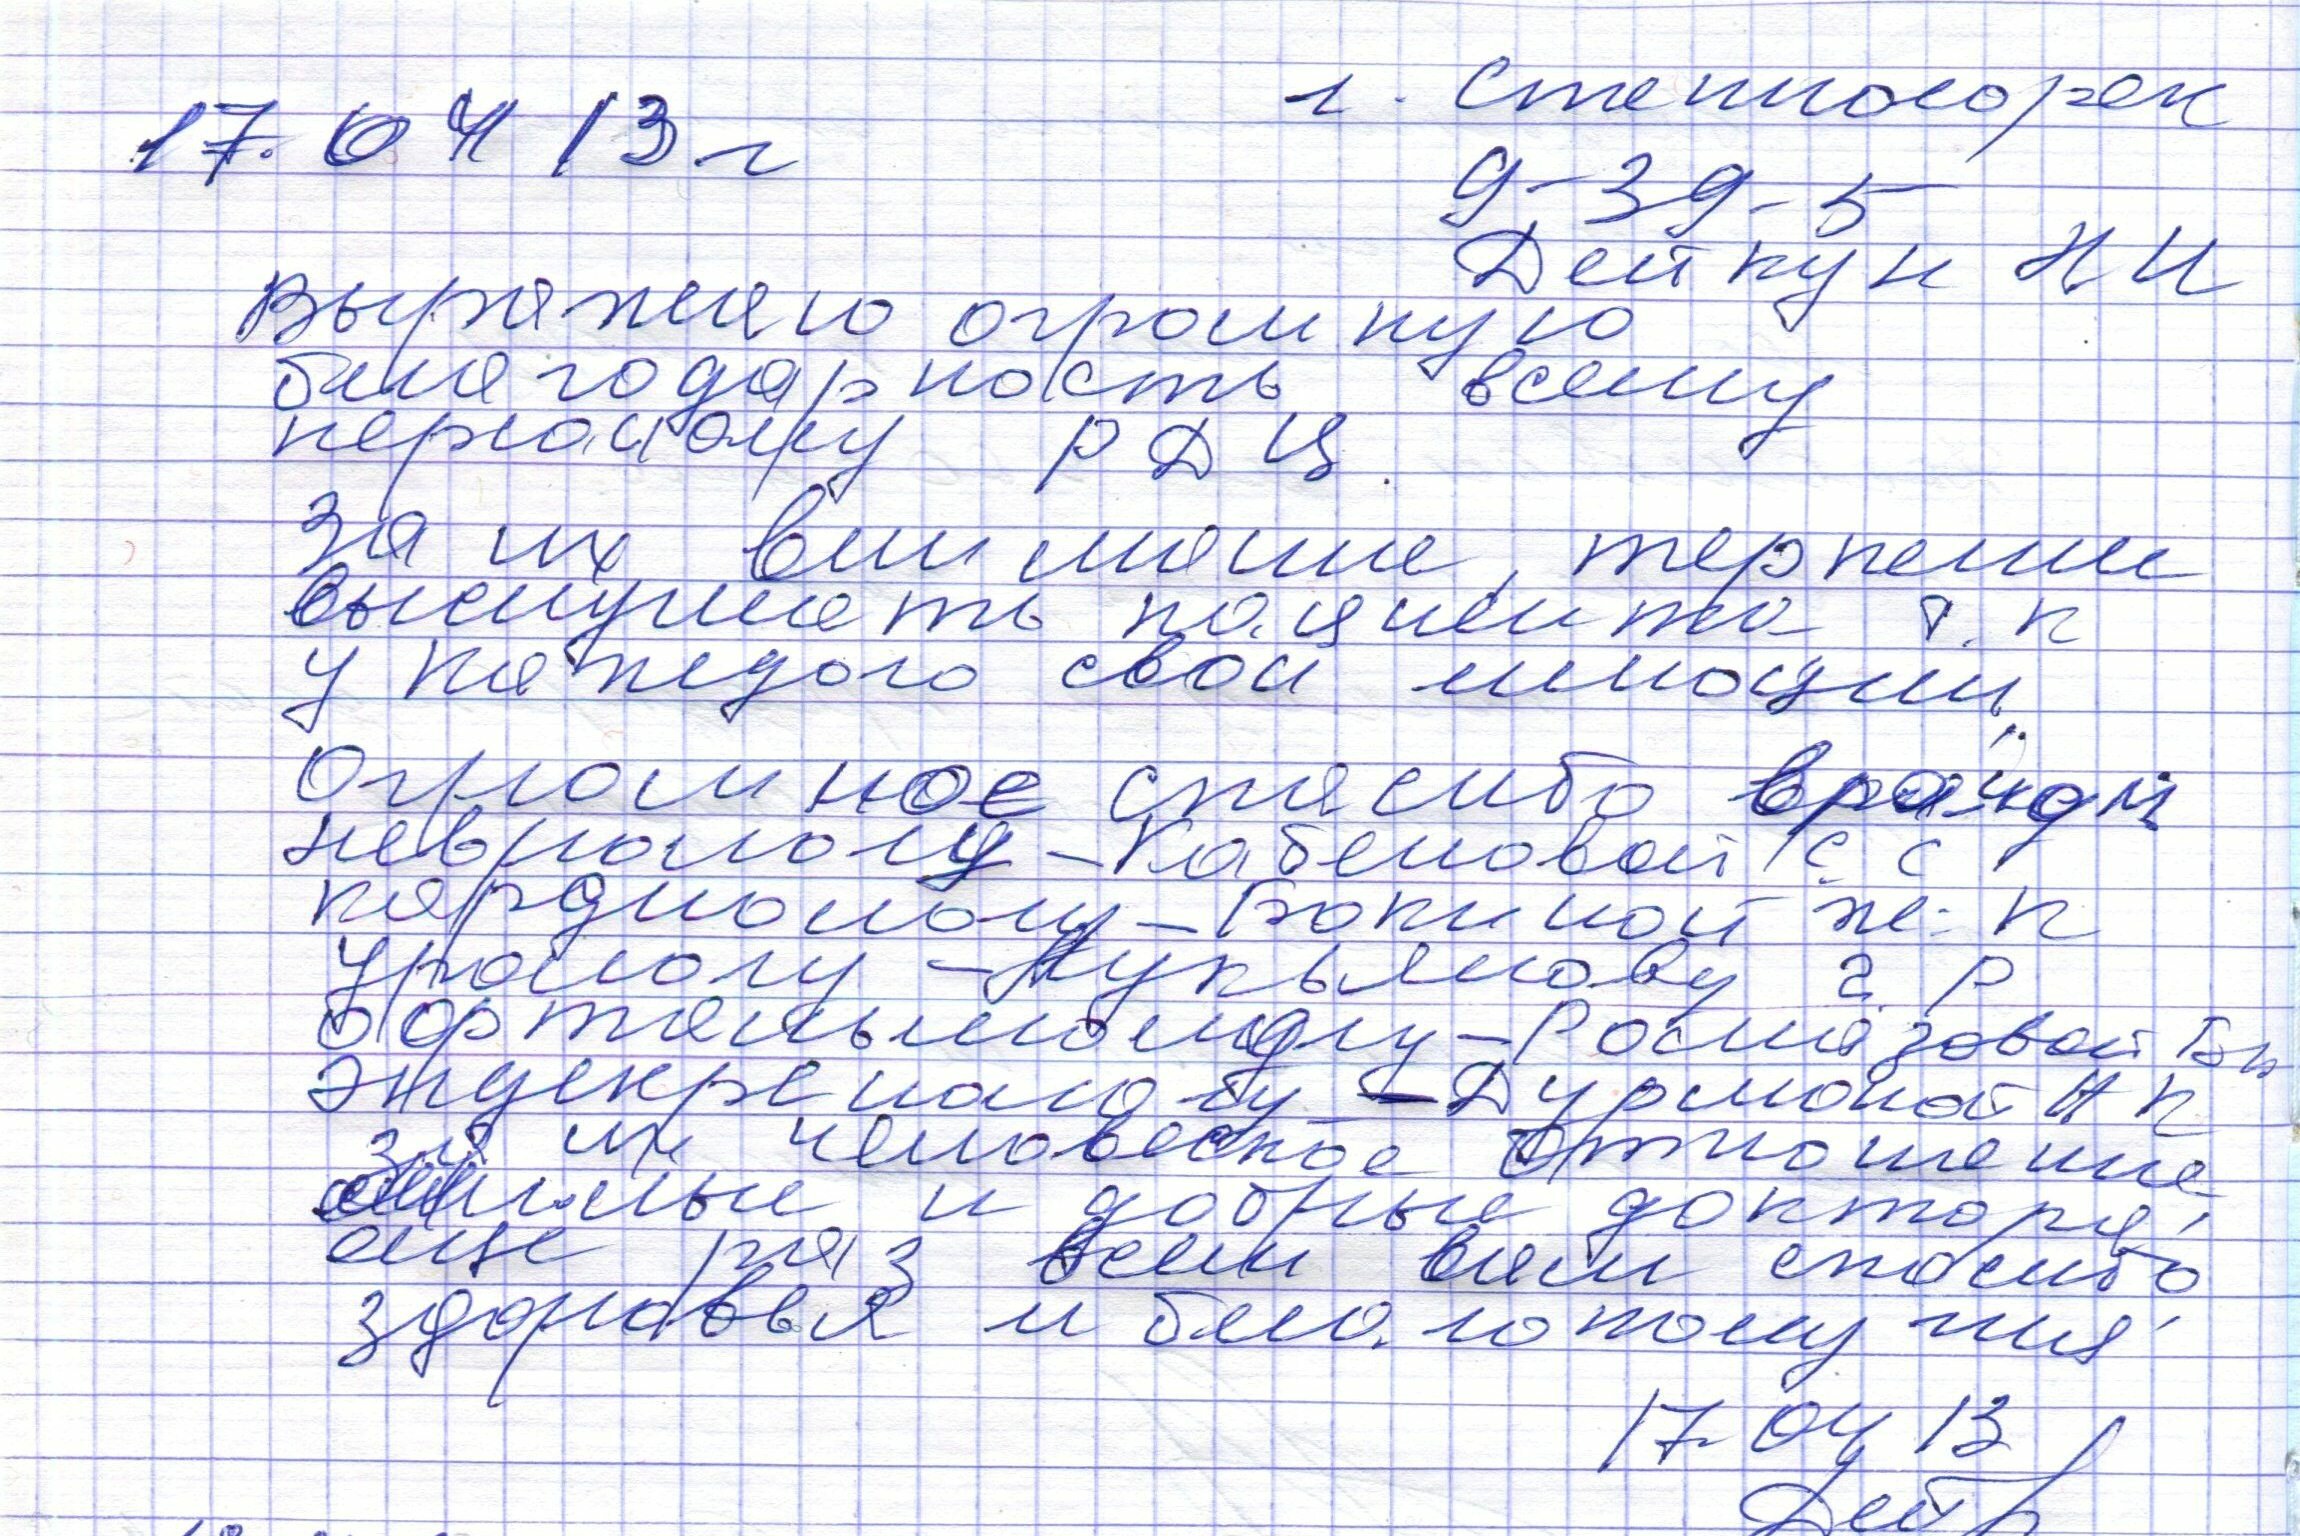 17.04 13 г
г. Степногорск
9-39-5
Дейкун Н И
Выражаю огромную
благодарность всему
персоналу РДЦ.
За их внимание, терпение
выслушать пациента т.к
у каждого свои эмоции.
Огромное спасибо врачам
неврологу - Кабеновой С. С
кардиологу - Бокиной Ж. К
урологу - Лукьянову Г. Р
офтальмологу - Рослязовой Бн
эндекренологу - Дурмоной Н К
за их человеское отношение
милые и добрые доктора,
еще раз всем вам спасибо
здоровья и благополучия
17.04 13